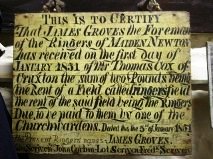 THIS IS TO CERTIFY
That JAMES GROVES the Foreman
of the Ringers of MAIDEN NEWTON
has received on the first day of
JANUARY 1851. of Mr Thomas Cox of
Cruxton the sum of two Pounds being
the Rent of a Field called ringersfield
the rent of the said field being the Ringers
Due, to be paid to them by one of the
Churchwardens. Dated this the 8th of January 1851
The Present Ringers names. JAMES GROVES.